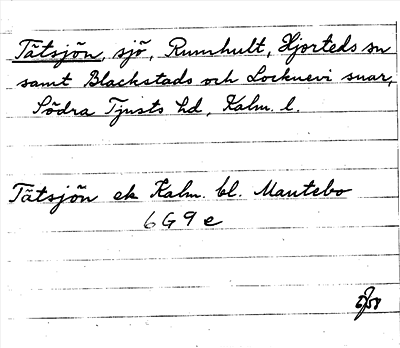 Tätsjön, sjö, Rumhult, Hjorteds sn
samt Blackstads och Locknevi snar,
Södra Tjusts hd, Kalm. l.
Tätsjön ek Kalm. bl. Mantebo
6G9e